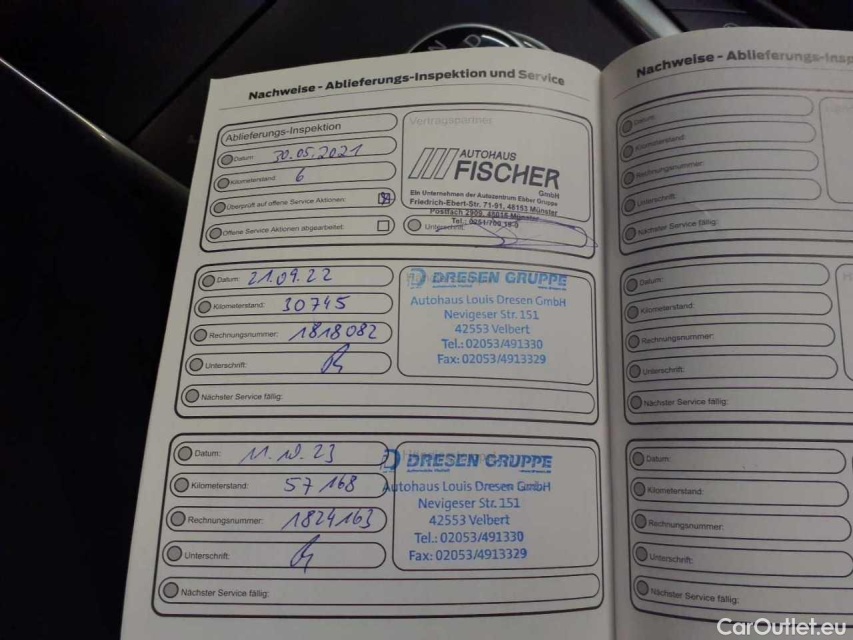 Nachweise - Ablieferungs-Inspektion und Service
Ablieferungs-Inspektion
Datum: 30.05.2021
Kilometerstand: 6
Überprüft auf offene Service Aktionen:
Offene Service Aktionen abgearbeitet:
Vertragspartner
AUTOHAUS
FISCHER
GmbH
Ein Unternehmen der Autozentrum Ebber Gruppe
Friedrich-Ebert-Str. 71-91, 48153 Münster
Postfach 2909, 48016 Münster
Tel.: 0251/700 18-0
Unterschrift:
Datum: 21.09.22
Kilometerstand: 30745
Rechnungsnummer: 1818082
Unterschrift:
Nächster Service fällig:
DRESEN GRUPPE
Autohaus Louis Dresen GmbH
Nevigeser Str. 151
42553 Velbert
Tel.: 02053/491330
Fax: 02053/4913329
Datum: 11.10.23
Kilometerstand: 57168
Rechnungsnummer: 1824163
Unterschrift:
Nächster Service fällig:
DRESEN GRUPPE
Autohaus Louis Dresen GmbH
Nevigeser Str. 151
42553 Velbert
Tel.: 02053/491330
Fax: 02053/4913329
Nachweise - Ablieferungs-Insp
Datum:
Kilometerstand:
Rechnungsnummer:
Unterschrift:
Nächster Service fällig:
Datum:
Kilometerstand:
Rechnungsnummer:
Unterschrift:
Nächster Service fällig:
Datum:
Kilometerstand:
Rechnungsnummer:
Unterschrift:
Nächster Service fällig:
CarOutlet.eu